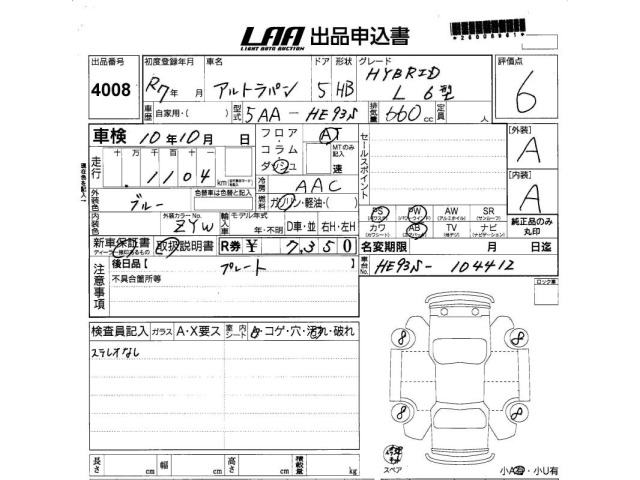 LAA 出品申込書
LIGHT AUTO AUCTION
出品番号 4008
初度登録年月 R7年 月
車名 アルトラパン
ドア 5
形状 HB
グレード HYBRID L 6型
評価点 6
車歴 自家用・( )
型式 5AA-HE93S
排気量 660cc
定員 人
車検 10年10月 日
フロア・コラム・ダッシュ
AT
MTのみ記入
速
セールスポイント
[外装] A
[内装] A
走行 十万千百十
1104 km
冷房 AAC
現在色を記入
外装色 ブルー
色替車は色替と記入
燃料 ガソリン・軽油・( )
内装色
外装カラーNo. ZYW
輸入車 モデル年式 年・不明
D車・並
右H・左H
PS (パワステ)
PW (パワーウインドウ)
AW (アルミホイル)
SR (サンルーフ)
カワ (カワシート)
AB (エアバッグ)
TV (地デジ)
ナビ (ナビゲーション)
純正品のみ丸印
新車保証書
取扱説明書
R券 ¥ 7,350
名変期限 月 日迄
注意事項
後日品[ プレート ]
不具合箇所等
車台No. HE93S-104412
ロック車
検査員記入 ガラス A・X要ス 室内シート コゲ・穴・汚れ・破れ
ステレオなし
8
8
8
8
スペア
小A有・小U有
長さ cm 幅 cm 高さ cm 積載量 kg